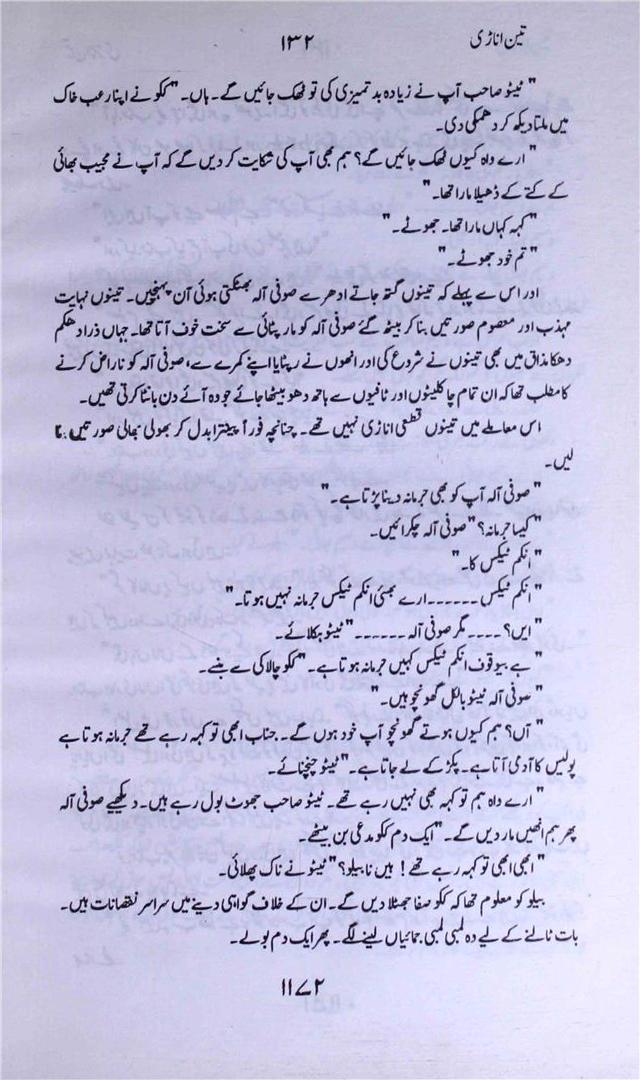 تین اناڑی
۱۳۲
" نیٹو صاحب آپ نے زیادہ بدتمیزی کی تو ٹھک جائیں گے۔ ہاں۔" ککو نے اپنا رعب خاک
میں ملتا دیکھ کر دھمکی دی۔
" ارے واہ کیوں ٹھک جائیں گے؟ ہم بھی آپ کی شکایت کر دیں گے کہ آپ نے مجیب بھائی
کے کتے کے ڈھیلا مارا تھا۔"
" کہہ کہاں مارا تھا۔ جھوٹے۔"
" تم خود جھوٹے۔"
اور اس سے پہلے کہ تینوں گتھ جاتے ادھر سے صوفی آلہ بھینکتی ہوئی آن پہنچیں۔ تینوں نہایت
مہذب اور معصوم صورتیں بنا کر بیٹھ گئے صوفی آلہ کو مار پٹائی سے سخت خوف آتا تھا۔ جہاں ذرا دھکم
دھکا مذاق میں بھی تینوں نے شروع کی اور انھوں نے رپٹایا اپنے کمرے سے، صوفی آلہ کو ناراض کرنے
کا مطلب تھا کہ ان تمام چاکلیٹوں اور ٹافیوں سے ہاتھ دھو بیٹھا جائے جو وہ آئے دن بانٹا کرتی تھیں۔
اس معاملے میں تینوں قطعی اناڑی نہیں تھے۔ چنانچہ فوراً پینترا بدل کر بھولی بھالی صورتیں بنا
لیں۔
" صوفی آلہ آپ کو بھی جرمانہ دینا پڑتا ہے۔"
" کیسا جرمانہ؟" صوفی آلہ چکرائیں۔
" انکم ٹیکس کا۔"
" انکم ٹیکس ۔۔۔۔۔۔ ارے بھئی انکم ٹیکس جرمانہ نہیں ہوتا۔"
" ایں؟ ۔۔۔۔ مگر صوفی آلہ ۔۔۔۔۔۔" نیٹو ہکلائے۔
" ہے بیوقوف انکم ٹیکس کہیں جرمانہ ہوتا ہے۔" ککو چالاکی سے ہنسے۔
" صوفی آلہ نیٹو بالکل گھونچو ہیں۔"
" آں؟ ہم کیوں ہوتے گھونچو آپ خود ہوں گے۔ جناب ابھی تو کہہ رہے تھے جرمانہ ہوتا ہے
پولیس کا آدمی آتا ہے۔ پکڑ کے لے جاتا ہے۔" نیٹو چنچنائے۔
" ارے واہ ہم تو کہہ بھی نہیں رہے تھے۔ نیٹو صاحب جھوٹ بول رہے ہیں۔ دیکھیے صوفی آلہ
پھر ہم انھیں مار دیں گے۔" ایک دم ککو مدعی بن بیٹھے۔
" ابھی ابھی تو کہہ رہے تھے! ہیں نا بیلو؟" نیٹو نے ناک پھلائی۔
بیلو کو معلوم تھا کہ ککو صفا جھٹلا دیں گے۔ ان کے خلاف گواہی دینے میں سراسر نقصانات ہیں۔
بات ٹالنے کے لیے وہ لمبی لمبی جمائیاں لینے لگے۔ پھر ایک دم بولے۔
۱۱۷۲